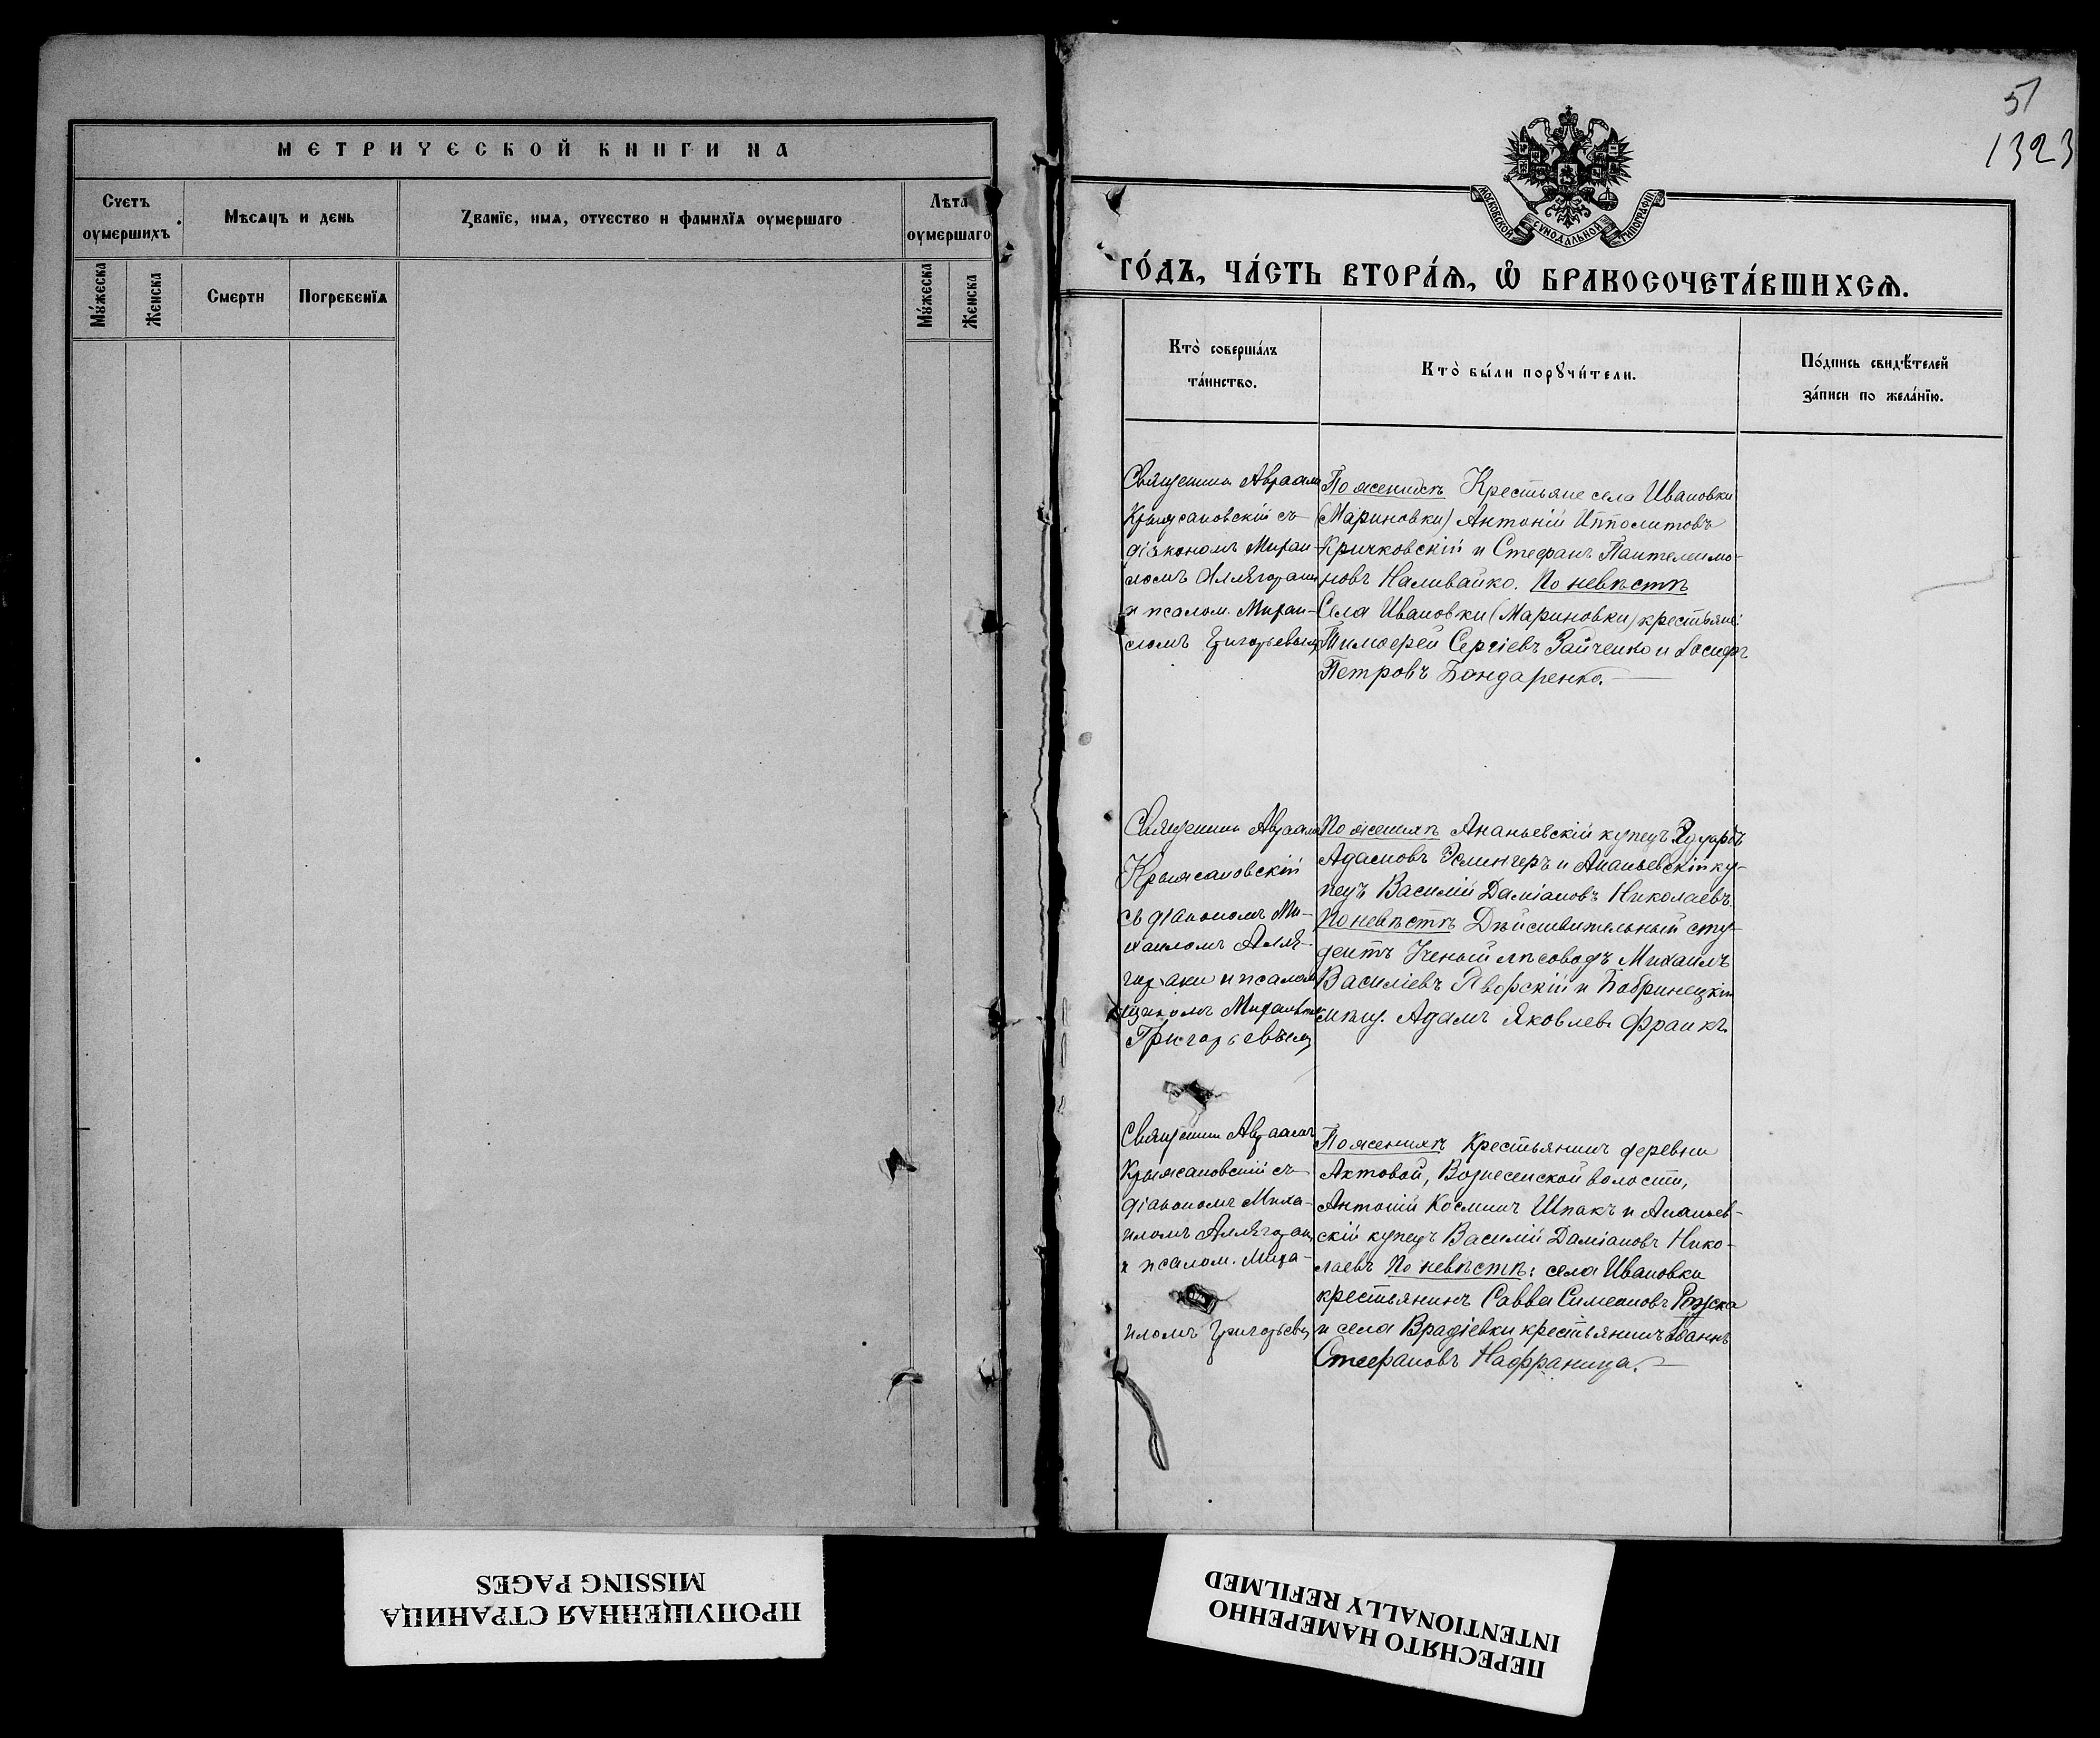 МЕТРИЧЕСКОЙ КНИГИ НА
Счетъ
оумершихъ
Мѣсяцъ и день
Званїе, имя, отчество и фамилїя оумершаго
Лѣта
оумершаго
Мужеска
Женска
Смерти
Погребенїя
Мужеска
Женска
51
1323
МОСКОВСКОЙ СѴНОДАЛЬНОЙ ТИПОГРАФІИ
ГО́ДЪ, ЧА́СТЬ ВТОРА́Я, Ѡ҆ БРАКОСОЧЕТА́ВШИХСЯ.
Кто̀ соверша́лъ
та́инство.
Кто̀ бы́ли порꙋчи́тели.
По́дпись свидѣ́телей
за́писи по жела́нїю.
Священникъ Авраамъ
Крыжановскій съ
діакономъ Михаи-
ломъ
и псалом. Михаи-
ломъ Григорьевымъ
По женихѣ Крестьяне села Ивановки
(Мариновки) Антоній Ипполитовъ
Кричковскій и Стефанъ Пантелеимо-
новъ Наливайко. По невѣстѣ
Села Ивановки (Мариновки) крестьяне:
Тимофей Сергіевъ Зайченко и Іосифъ
Петровъ Бондаренко.
Священникъ Авраамъ
Крыжановскій
съ діакономъ Ми-
хаиломъ Алля-
и псалом
щикомъ Михаиломъ
Григорьевымъ
По женихѣ Ананьевскій купецъ Эдуардъ
Адамовъ и Ананьевскій ку-
пецъ Василій Даміановъ Николаевъ.
По невѣстѣ Дѣйствительный сту-
дентъ Ученый лѣсоводъ Михаилъ
Василіевъ Яворскій и Бобринецкій
мѣщ. Адамъ Яковлевъ Франкъ.
Священникъ Авраамъ
Крыжановскій съ
діакономъ Миха-
иломъ
и псалом. Миха-
иломъ Григорьевы
По женихѣ Крестьянинъ деревни
Актовой, Вознесенской волости,
Антоній Космичъ Шпакъ и Ананьев-
скій купецъ Василій Даміановъ Нико-
лаевъ По невѣстѣ: села Ивановки
крестьянинъ Савва Симеоновъ
и села Врадіевки крестьянинъ Іоаннъ
Стефановъ Нафраница.
ПРОПУЩЕННАЯ СТРАНИЦА
MISSING PAGES
ПЕРЕСНЯТО НАМЕРЕННО
INTENTIONALLY REFILMED